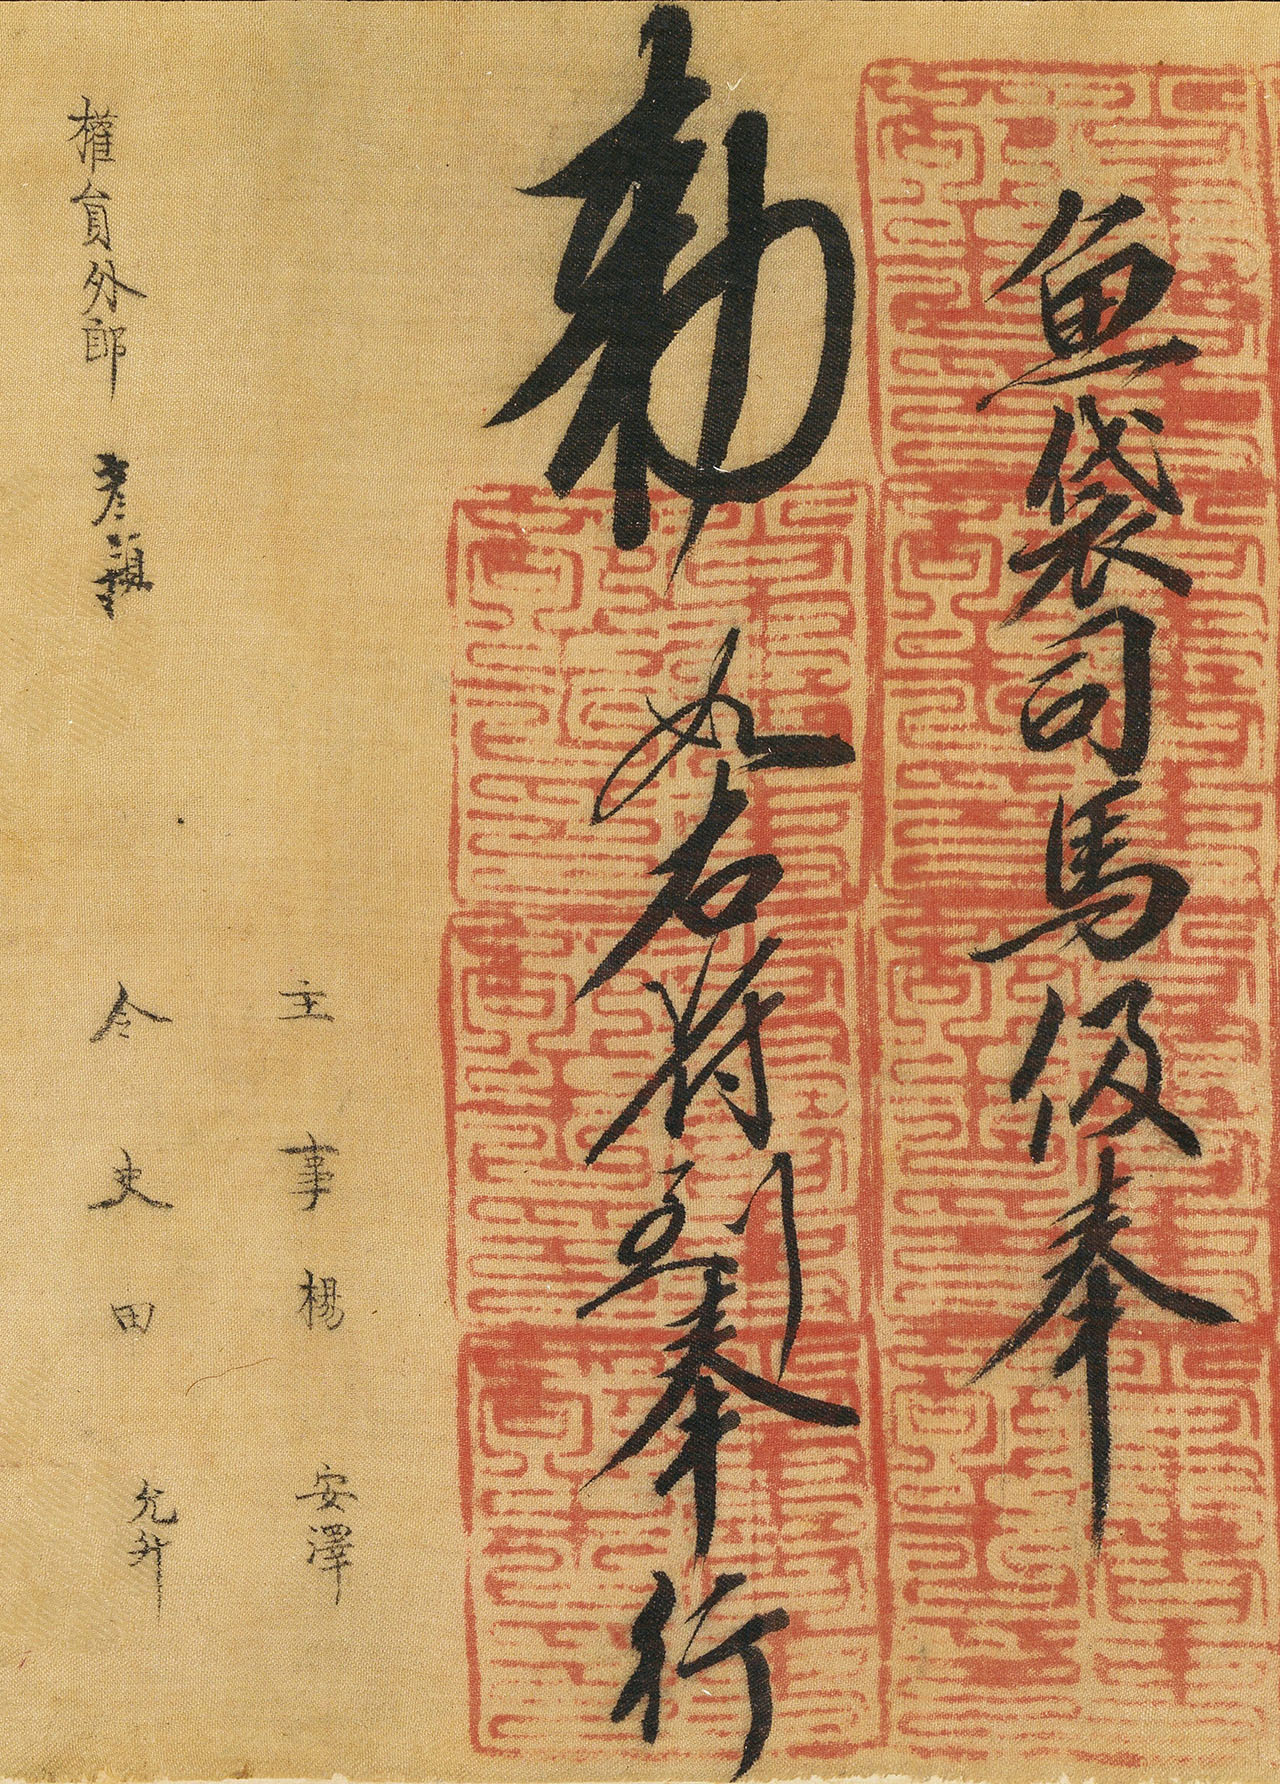 魚袋司馬伋奉
勑如右符到奉行
主事楊安澤
權員外郎 彥穎 令史田允升